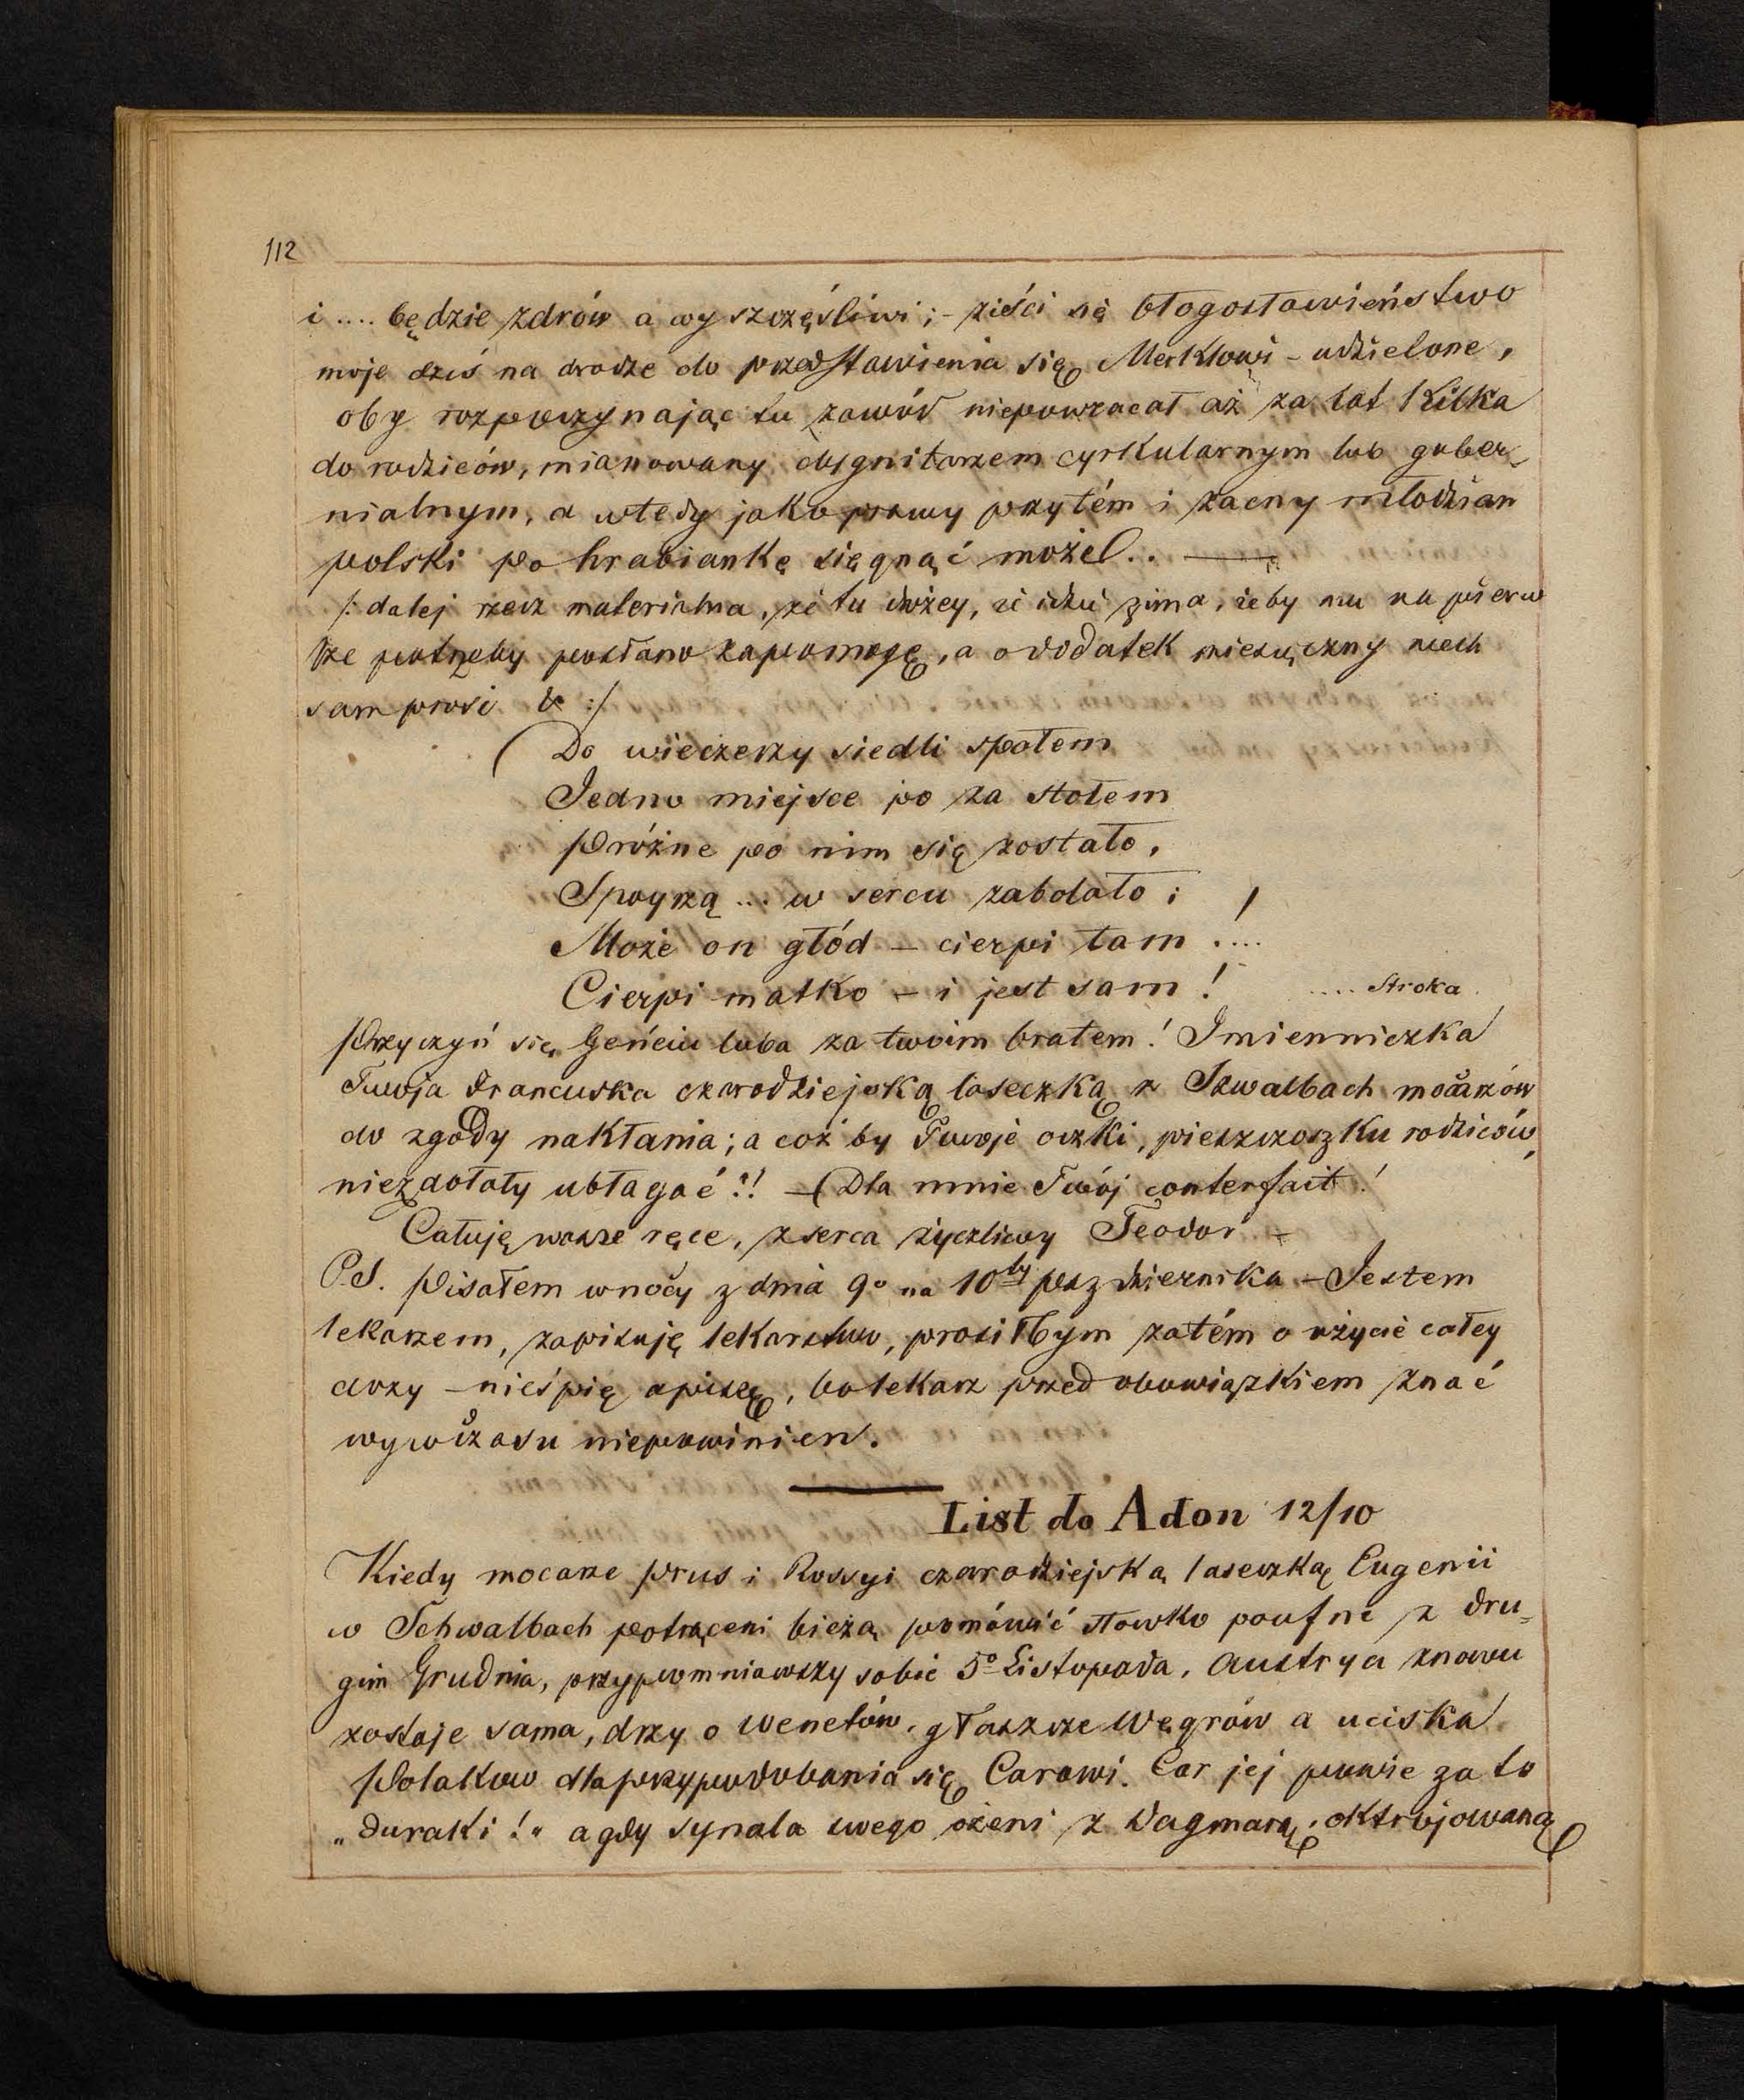 112
i .... będzie zdrów a wy szczęśliwi; - ziści się błogosławieństwo
moje dziś na drodze do przedstawienia się Merklowi - udzielone,
oby rozpoczynając tu zawód niepowracał aż za lat kilka
do rodziców, mianowany dygnitarzem cyrkularnym lub guber-
nialnym, a wtedy jako prawy przytém i zacny młodzian
polski po hrabiankę sięgnąć może!.. —
/: dalej rzecz materialna, że tu drożey, że idzie zima, żeby mu na pierw
sze potrzeby posłano zapomogę, a o dodatek miesięczny niech
sam prosi & :/
( Do wieczerzy siedli społem
Jedno miejsce po za stołem
Próżne po nim się zostało,
Spoyrzą ... w sercu zabolało ;
Może on głód - cierpi tam .... !
Cierpi matko - i jest sam ! .... Stroka.
Przyczyń się Geńciu luba za twoim bratem! Imienniczka
Twoja francuska czarodziejską laseczką z Szwalbach mocarzów
do zgody nakłania; a coż by Twoje oczki, pieszczoszku rodziców,
niezdołały ubłagać?!! - (Dla mnie Twój conterfait!
Całuję wasze ręce, z serca życzliwy Teodor -
P.S. Pisałem w nocy z dnia 9º na 10ty października - Jestem
lekarzem, zapisuję lekarstwo, prosiłbym zatém o użycie całey
dozy - nieśpię a piszę, bo lekarz przed obowiązkiem znać
wywczasu niepowinien.
List do Adon 12/10
Kiedy mocarze Prus i Rossyi czarodziejską laseczką Eugenii
w Schwalbach potrąceni bieżą pomówić słowko poufne z dru-
gim Grudnia, przypomniawszy sobie 5º Listopada, Austrya znowu
zostaje sama, drży o Wenetów, głaszcze Węgrów a uciska
Polaków dla przypodobania się Carowi. Car jej powie za to
„duraki!" a gdy synala swego ożeni z Dagmarą, oktrojowaną